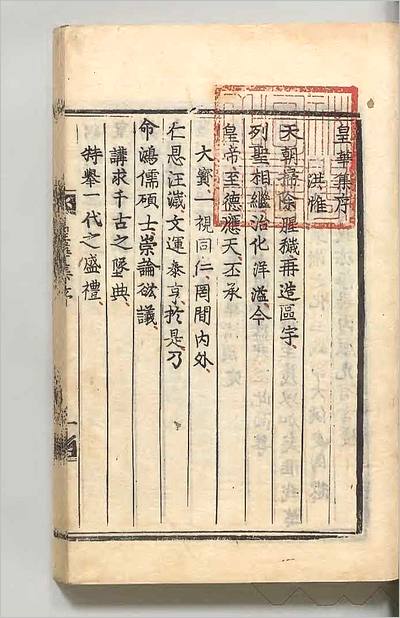 皇華集序
洪惟
天朝掃除腥穢再造區宇
列聖相繼治化洋溢今
皇帝至德應天丕承
大寶一視同仁罔間內外
仁恩汪濊文運泰亨於是乃
命鴻儒碩士崇論竑議
講求千古之墜典
特舉一代之盛禮